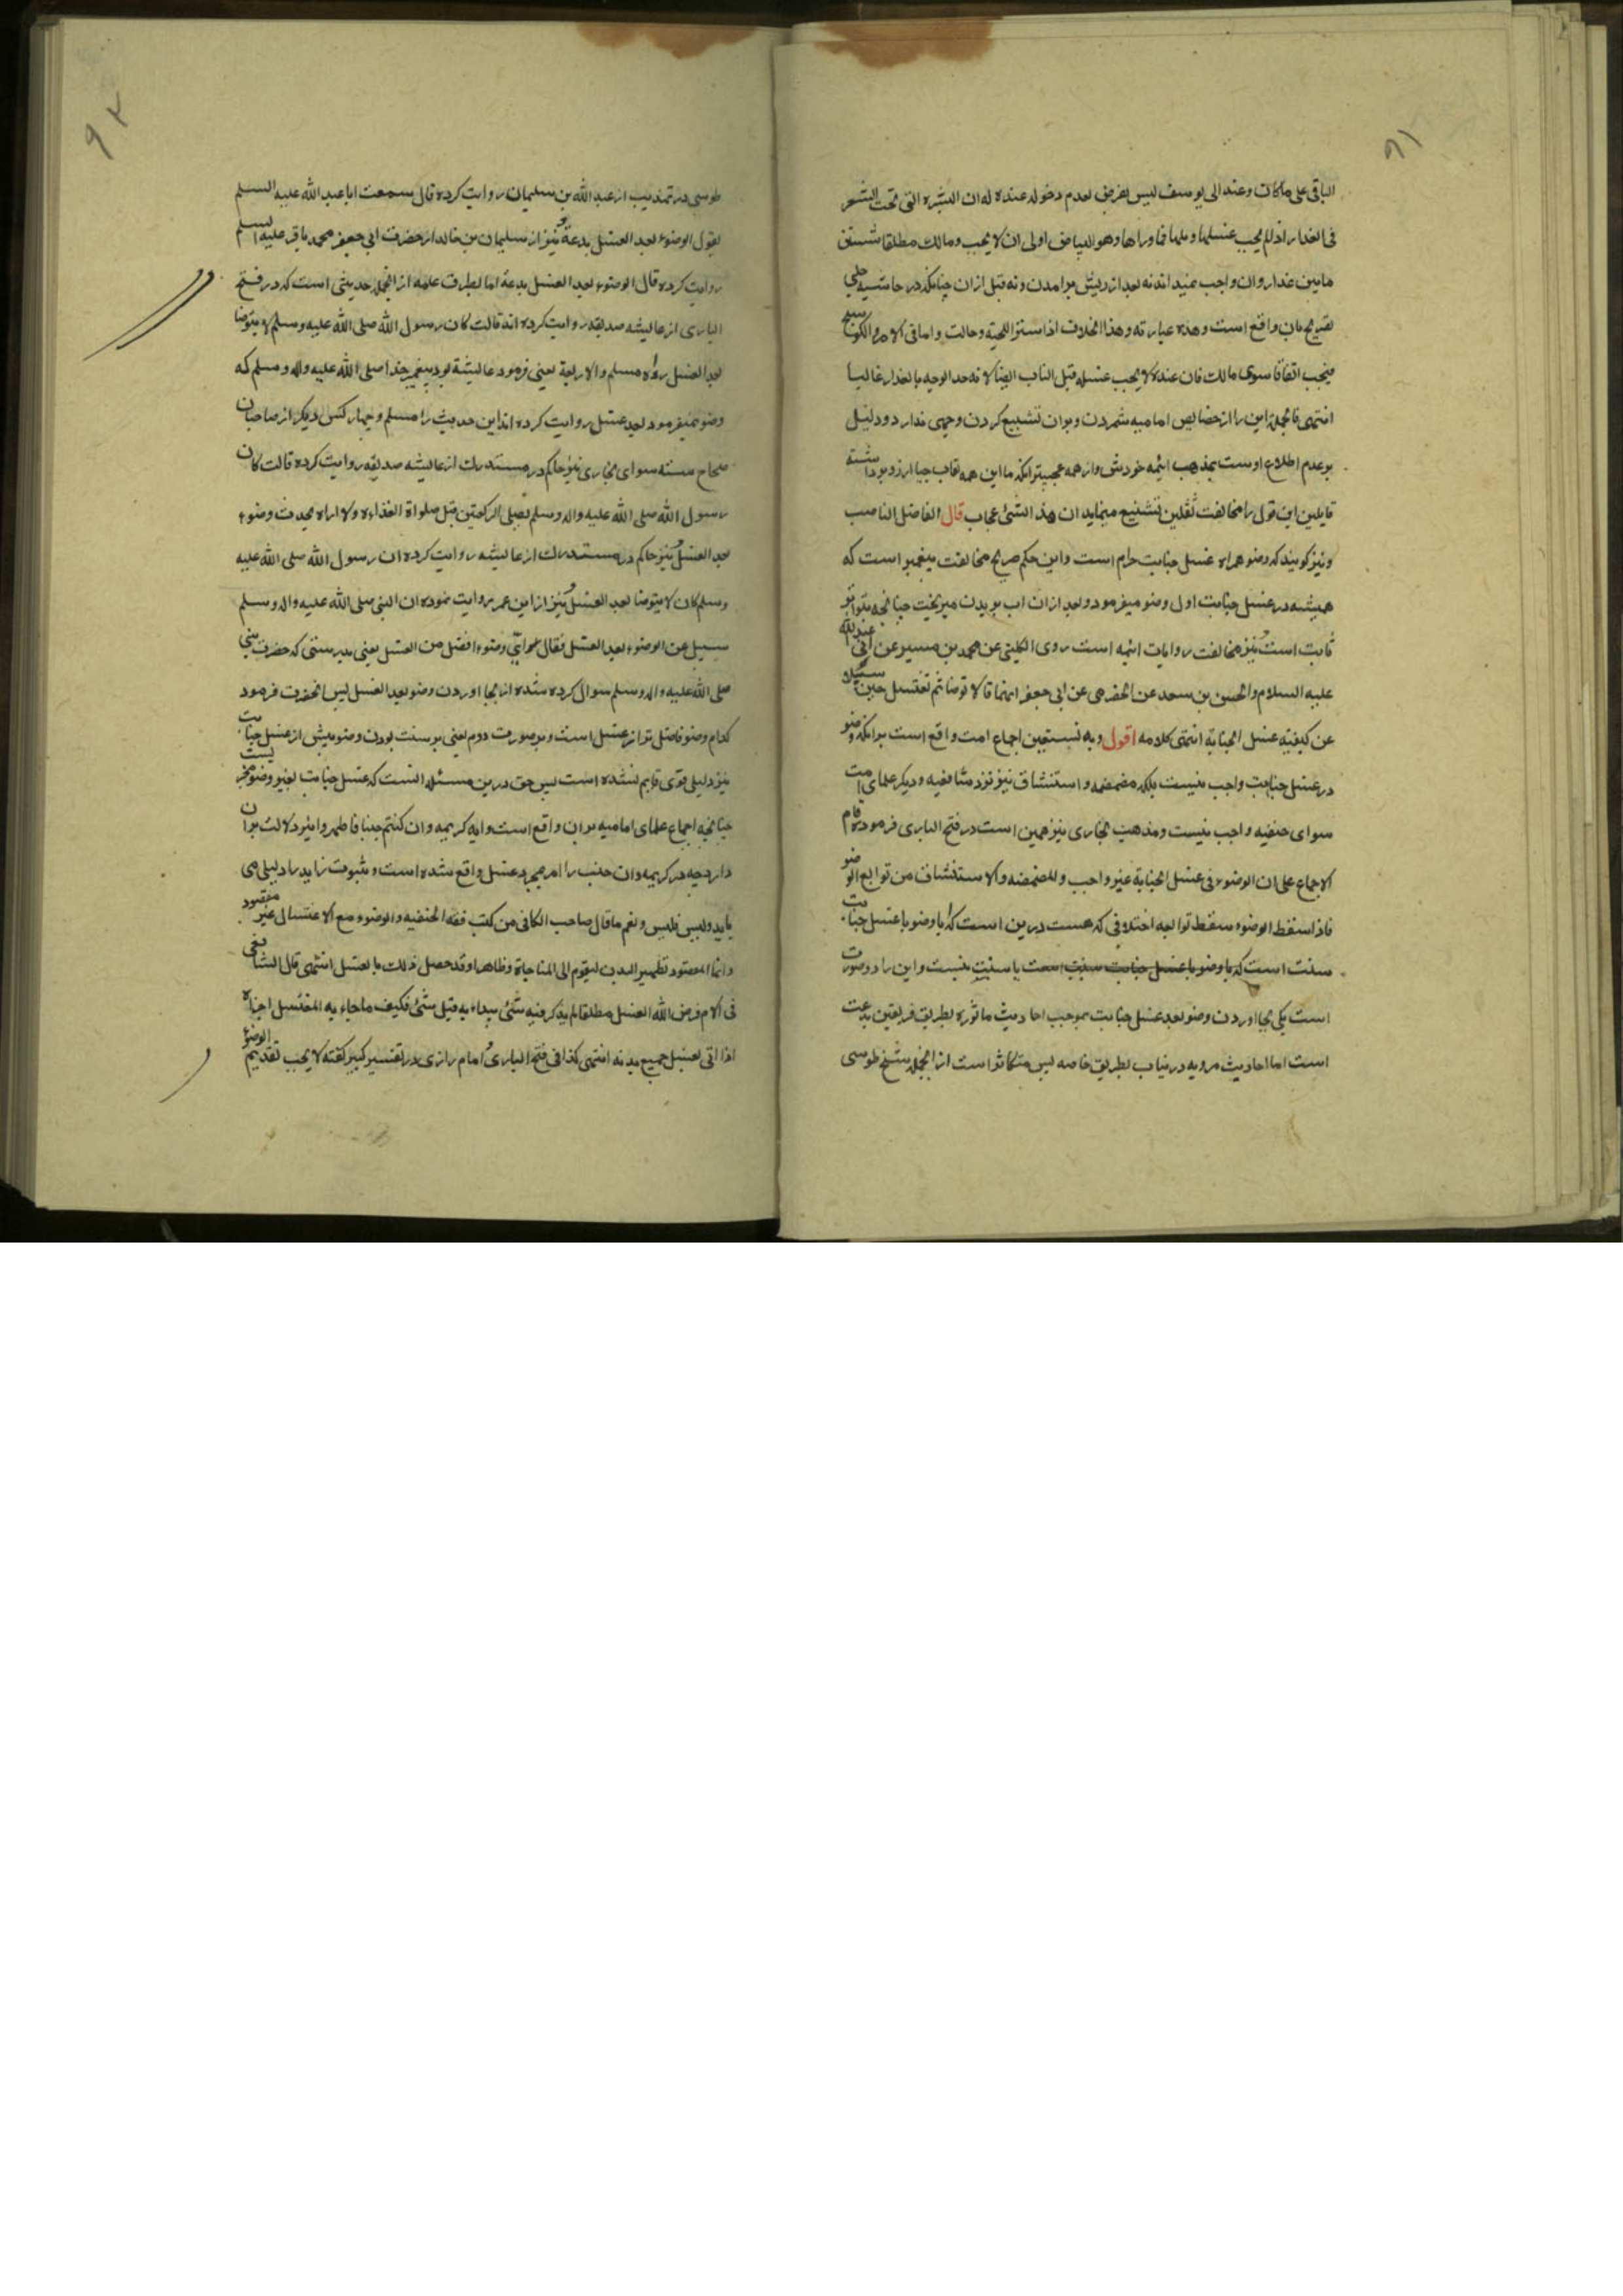 ۹۱
الباقی علی ماکان وعند ابی یوسف لیس بفرض لعدم دخوله عنده له ان البشره التی تحت الشعر
فی العذار اذا لم یجب غسلها و بلها فما وراها وهو البیاض اولی ان لا یجب ومالک مطلقا شستن
مابین عذار و ان واجب نمیداند نه بعد از ریش برامدن و نه قبل ازان چنانکه در حاشیه چلپی
تصریح بان واقع است وهذه عبارته وهذا الخلاف اذا ستر اللحیة وحالت واما فی الامرد والکوسج
فیجب اتفاقا سوی مالک فان عنده لا یجب غسله قبل النبات ایضا لانه حد الوجه بالعذار غالبا
انتهی فالجمله این را از خصایص امامیه شمردن و بران تشنیع کردن وجهی ندارد و دلیل
بر عدم اطلاع اوست بمذهب ایمه خودش و از همه عجیبتر انکه با این همه نقاب حیا از رو برداشته
قایلین این قول را مخالفت ثقلین تشنیع مینماید ان هذا الشئ عجاب قال الفاضل الناصب
و نیز کویند که وضو همراه غسل جنابت حرام است و این حکم صریح مخالفت پیغمبر است که
همیشه در غسل جنابت اول وضو میفرمود و بعد ازان اب بر بدن میریخت چنانچه بتواتر
ثابت است و نیز مخالفت روایات ائمه است روی الکلینی عن محمد بن میسر عن ابی عبدالله
علیه السلام والحسن بن سعد عن الحضرمی عن ابی جعفر انهما قالا توضا ثم تغتسل حین سئلا
عن کیفیة غسل الجنابة انتهی کلامه اقول وبه نستعین اجماع امت واقع است برانکه وضو
در غسل جنابت واجب نیست بلکه مضمضه و استنشاق نیز نزد شافعیه و دیکر علمای امت
سوای حنفیه واجب نیست و مذهب بخاری نیز همین است در فتح الباری فرموده قام
الاجماع علی ان الوضوء فی غسل الجنابة غیر واجب والمضمضه والاستنشاق من توابع الوضو
فاذا سقط الوضوء سقط توابعه اختلافی که هست درین است که ایا وضو با غسل جنابت
سنت است که ایا وضو با غسل جنابت سنت است یا سنت نیست و این را دو صورت
است یکی بجا اوردن وضو بعد غسل جنابت بموجب احادیث ماثوره بطریق فریقین بدعت
است اما احادیث مرویه درین باب بطریق خاصه پس متکاثر است از انجمله شیخ طوسی
۹۲
طوسی در تهذیب از عبد الله بن سلیمان روایت کرده قال سمعت ابا عبد الله علیه السلم
یقول الوضوء بعد الغسل بدعة و نیز از سلیمان بن خالد از حضرت ابی جعفر محمد باقر علیه السلم
روایت کرده قال الوضوء بعد الغسل بدعة اما بطرق عامه از انجمله حدیثی است که در فتح
الباری از عایشه صدیقه روایت کرده اند قالت کان رسول الله صلی الله علیه وسلم لا یتوضا
بعد الغسل رواه مسلم والاربعة یعنی فرمود عایشة بود پیغمبر خدا صلی الله علیه واله وسلم که
وضو نمیفرمود بعد غسل روایت کرده اند این حدیث را مسلم و چهار کس دیکر از صاحبان
صحاح سته سوای بخاری و نیز حاکم در مستدرک از عایشه صدیقه روایت کرده قالت کان
رسول الله صلی الله علیه واله وسلم یصلی الرکعتین قبل صلواة الغداء ولا اراه یحدث وضوء
بعد الغسل و نیز حاکم در مستدرک از عایشه روایت کرده ان رسول الله صلی الله علیه
وسلم کان لا یتوضا بعد الغسل و نیز از ابن عمر روایت نموده ان النبی صلی الله علیه واله وسلم
سیل عن الوضوء بعد الغسل فقال وای وضوء افضل من الغسل یعنی بدرستی که حضرت نبی
صلی الله علیه واله وسلم سوال کرده شده از بجا اوردن وضو بعد الغسل پس انحضرت فرمود
کدام وضو فاضل تر از غسل است و بر صورت دوم یعنی بر سنت بودن وضو پیش از غسل جنابت
نیز دلیلی قوی قایم نشده است پس حق درین مسئله انست که غسل جنابت بغیر وضو مجزیست
چنانچه اجماع علمای امامیه بران واقع است و ایه کریمه وان کنتم جنبا فاطهروا نیز دلالت بران
دارد چه در کریمه وان جنب را امر بمجرد غسل واقع شده است و ثبوت زاید را دلیلی می
باید ولیس فلیس و نعم ما قال صاحب الکافی من کتب فقه الحنفیه والوضوء مع الاغتسال غیر مقصود
وانما المقصود تطهیر البدن لیقوم الی المناجاة وظاهرا وقد حصل ذلک بالغسل انتهی قال الشافعی
فی الام فرض الله الغسل مطلقا لم یذکر فیه شئ یبداء به قبل شئ فکیف ما جاء به المغتسل اجزاه
اذا اتی بغسل جمیع بدنه انتهی کذا فی فتح الباری و امام رازی در تفسیر کبیر کفته لا یجب تقدیم الوضوء